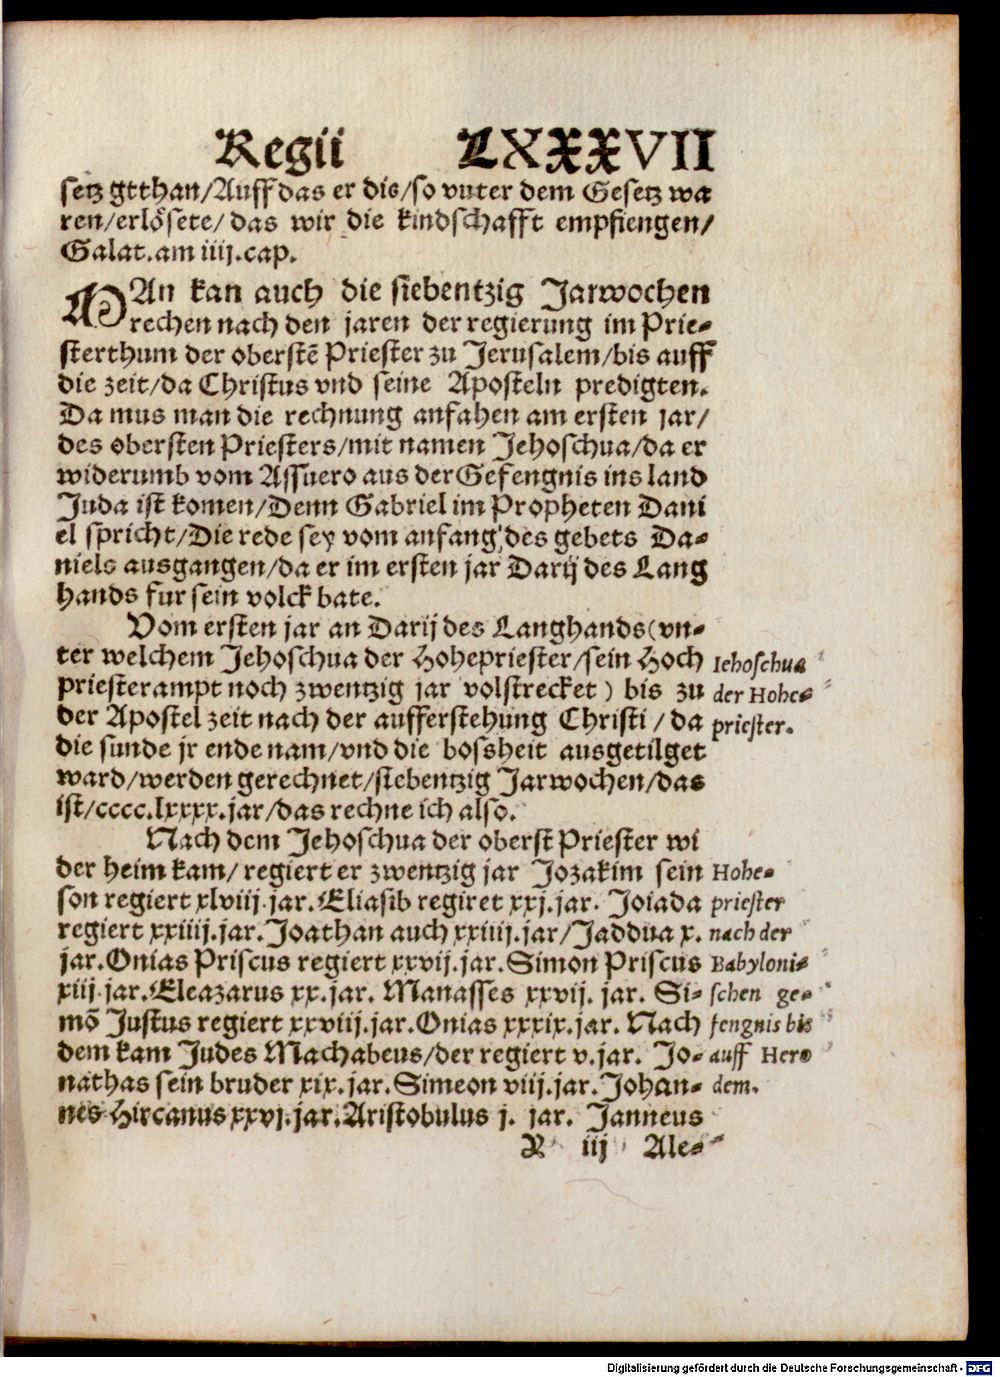 Regii LXXXVII
setz getthan/Auff das er die/so vnter dem Gesetz wa
ren/erlösete/das wir die kindschafft empfiengen/
Galat.am iiij.cap.
MAn kan auch die siebentzig Jarwochen
rechen nach den jaren der regierung im Prie-
sterthum der oberstē Priester zu Jerusalem/bis auff
die zeit/da Christus vnd seine Aposteln predigten.
Da mus man die rechnung anfahen am ersten jar/
des obersten Priesters/mit namen Jehoschua/da er
widerumb vom Assuero aus der Gefengnis ins land
Juda ist komen/Denn Gabriel im Propheten Dani
el spricht/Die rede sey vom anfang des gebets Da-
niels ausgangen/da er im ersten jar Darij des Lang
hands fur sein volck bate.
Vom ersten jar an Darij des Langhands(vn-
ter welchem Jehoschua der Hohepriester/sein Hoch
priesterampt noch zwentzig jar volstrecket) bis zu
der Apostel zeit nach der aufferstehung Christi/da
die sunde jr ende nam/vnd die bossheit ausgetilget
ward/werden gerechnet/siebentzig Jarwochen/das
ist/cccc.lxxxx.jar/das rechne ich also.
Iehoschua
der Hohe-
priester.
Nach dem Jehoschua der oberst Priester wi
der heim kam/regiert er zwentzig jar Jozakim sein
son regiert xlviij.jar.Eliasib regiret xxj.jar. Joiada
regiert xxiiij.jar.Joathan auch xxiiij.jar/Jaddua x.
jar.Onias Priscus regiert xxvij.jar.Simon Priscus
xiij.jar.Eleazarus xx.jar. Manasses xxvij. jar. Si-
mō Justus regiert xxviij.jar.Onias xxxix.jar. Nach
dem kam Judes Machabeus/der regiert v.jar. Jo-
nathas sein bruder xix.jar.Simeon viij.jar.Johan-
nes Hircanus xxvj.jar.Aristobulus j. jar. Janneus
Hohe-
priester
nach der
Babyloni-
schen ge-
fengnis bis
auff Hero
dem.
R iij Ale-
Digitalisierung gefördert durch die Deutsche Forschungsgemeinschaft - DFG